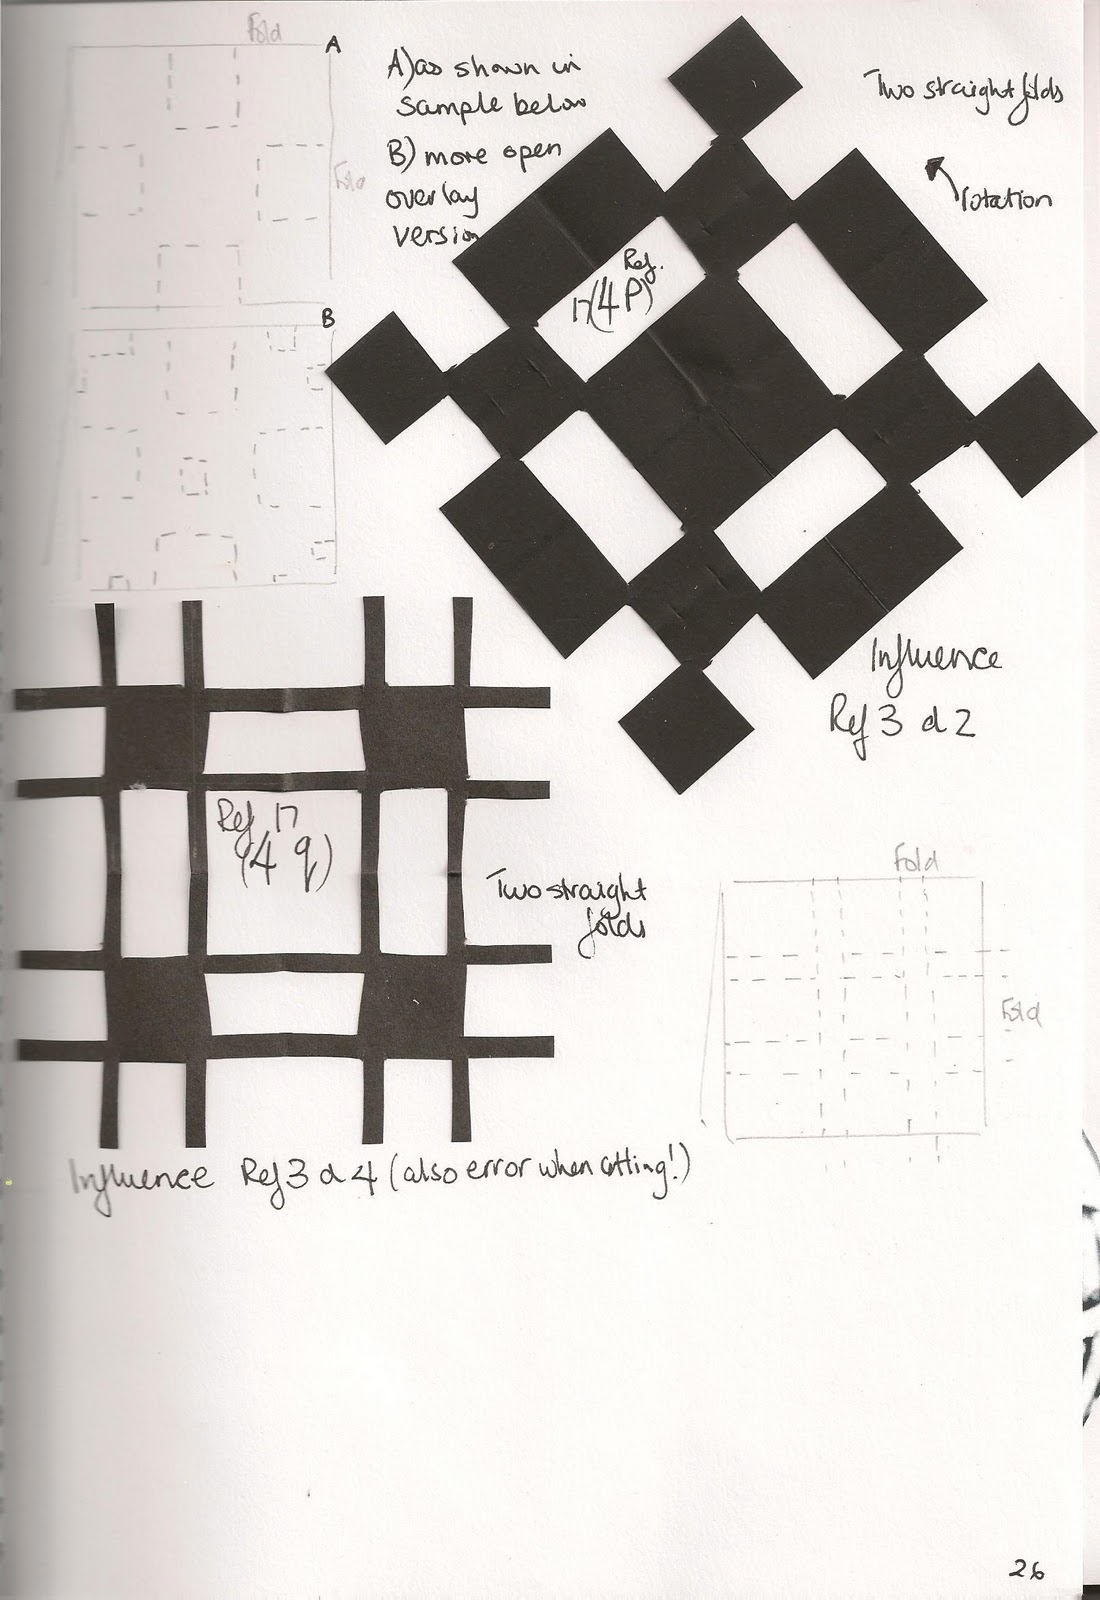 Fold
A
A) as shown in
sample below
B) more open
overlay
version
Fold
B
Two straight folds
rotation
Ref.
17(4P)
Influence
Ref 3 d 2
Ref 17
(4 q)
Two straight
folds
Fold
Fold
Influence Ref 3 d 4 (also error when cutting!)
26